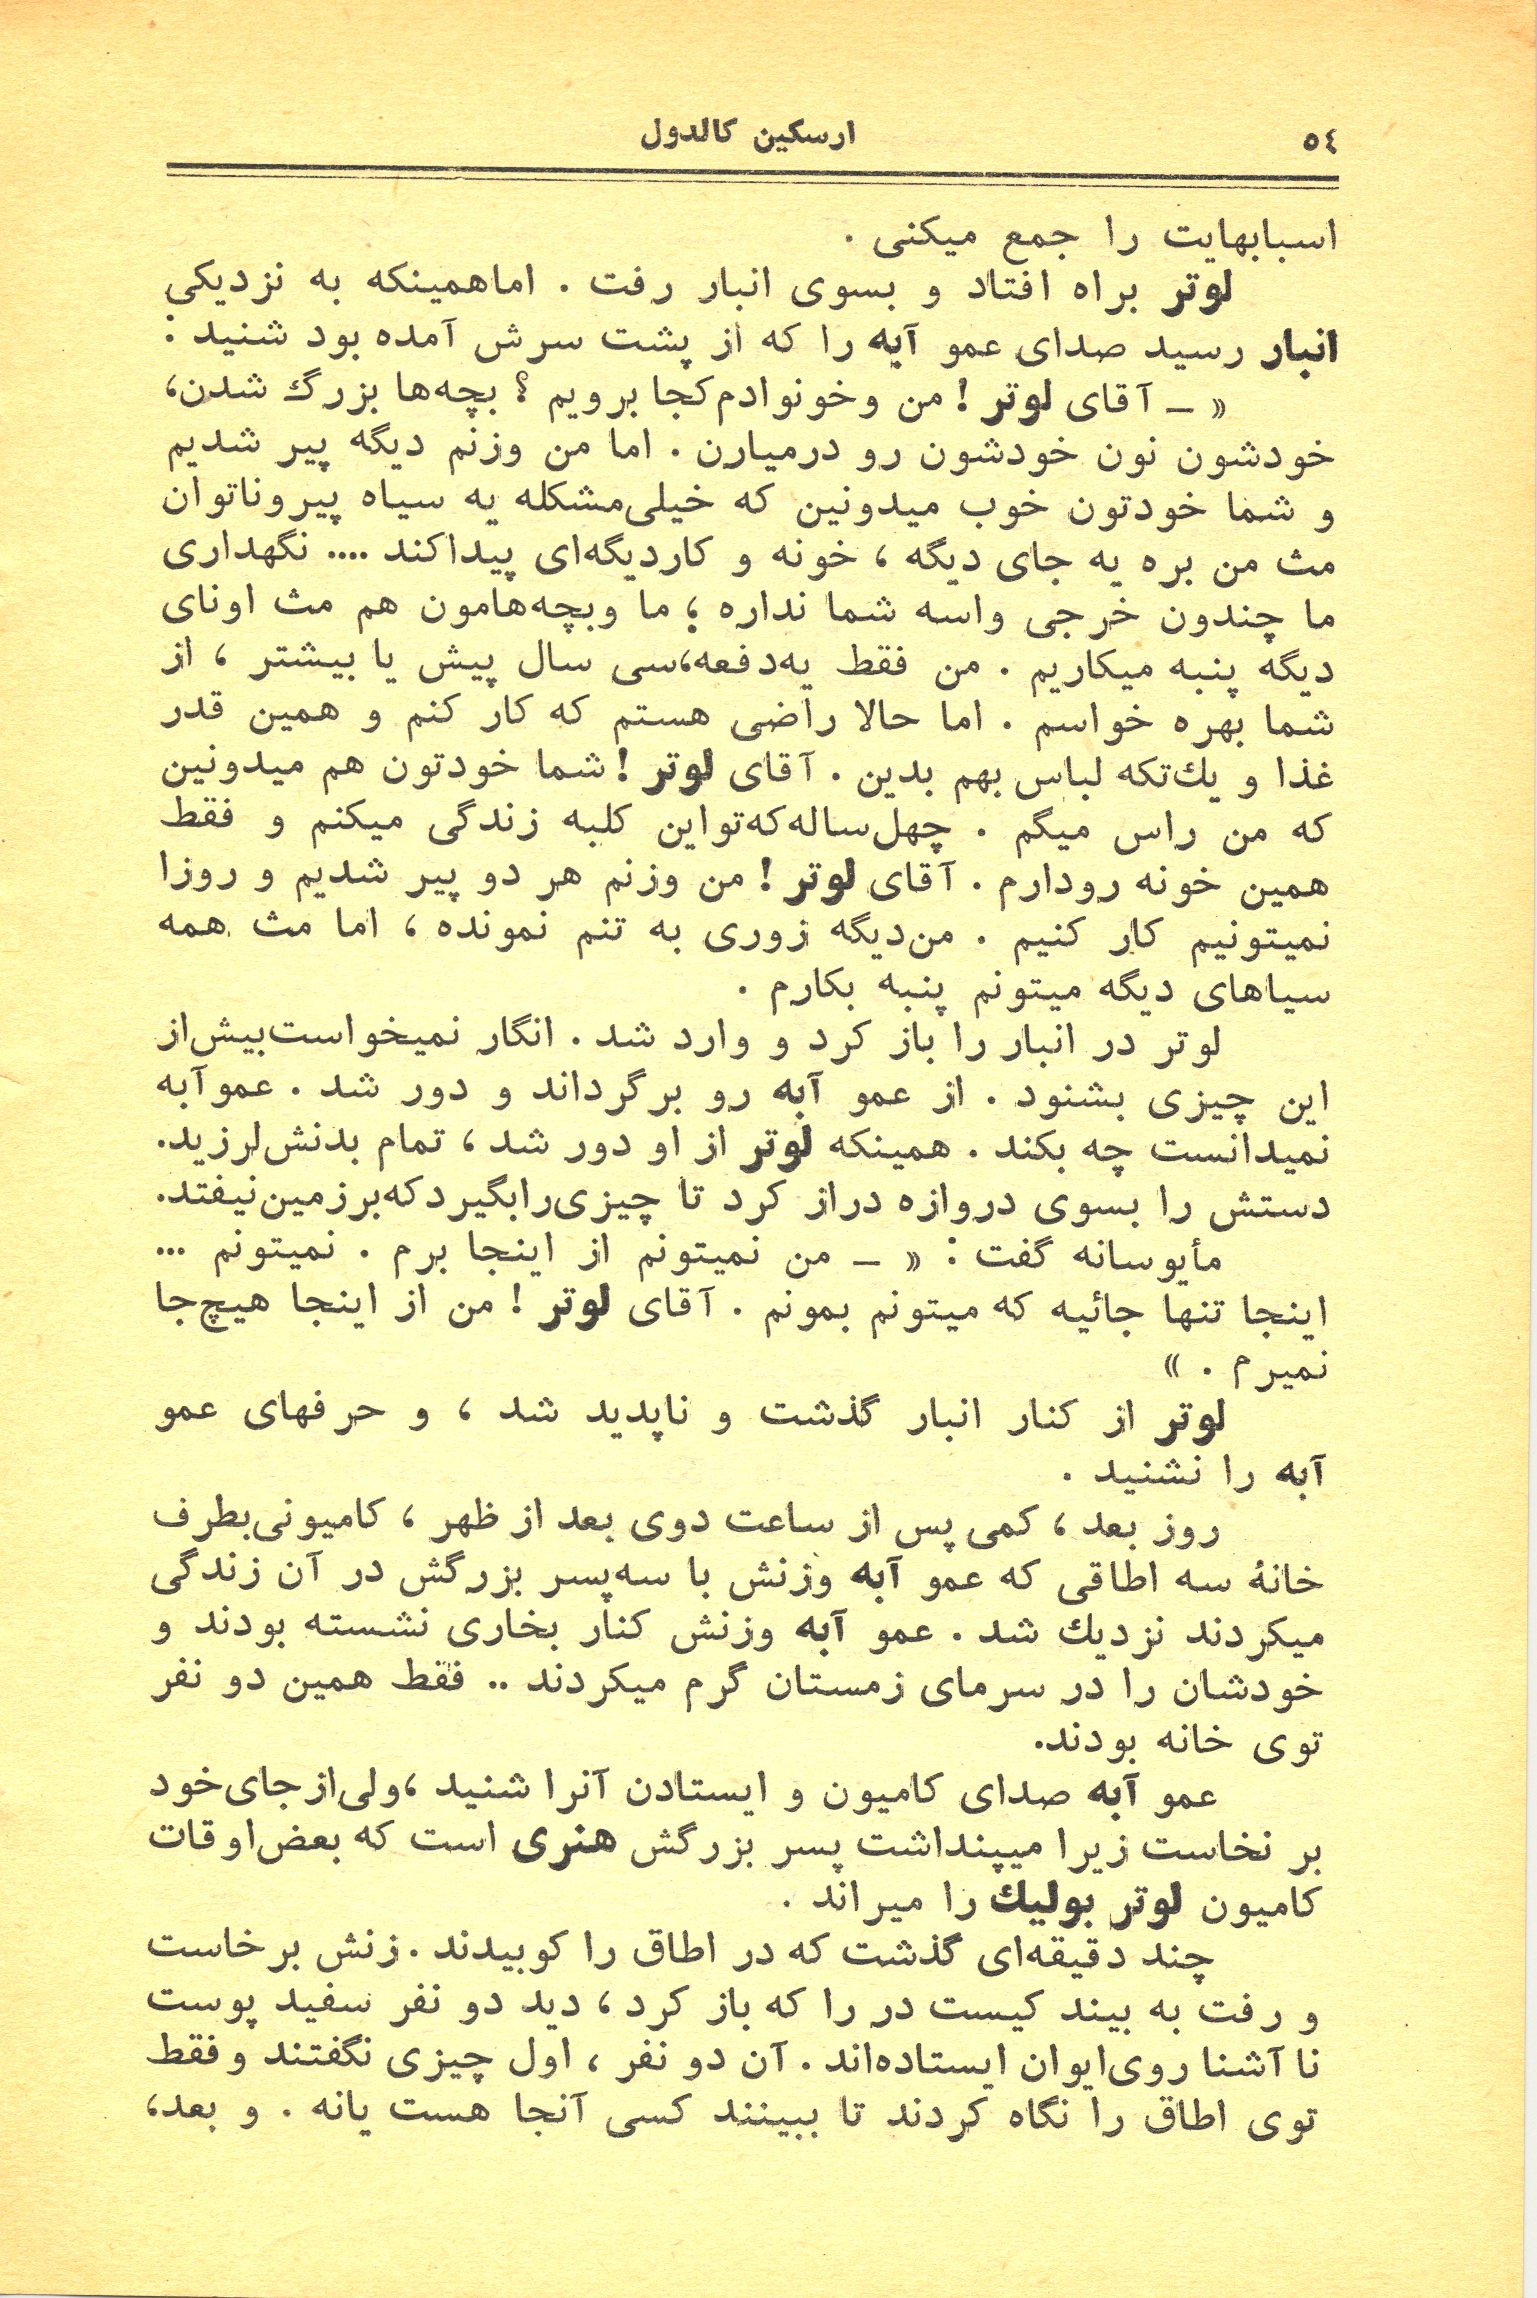 ٥٤
ارسکین کالدول
اسبابهایت را جمع میکنی .
لوتر براه افتاد و بسوی انبار رفت . اماهمینکه به نزدیکی
انبار رسید صدای عمو آبه را که از پشت سرش آمده بود شنید :
« ـ آقای لوتر ! من وخونوادم کجا برویم ؟ بچه‌ها بزرگ شدن،
خودشون نون خودشون رو درمیارن . اما من وزنم دیگه پیر شدیم
و شما خودتون خوب میدونین که خیلی‌مشکله یه سیاه پیروناتوان
مث من بره یه جای دیگه ، خونه و کاردیگه‌ای پیداکند .... نگهداری
ما چندون خرجی واسه شما نداره ؛ ما وبچه‌هامون هم مث اونای
دیگه پنبه میکاریم . من فقط یه‌دفعه،سی سال پیش یا بیشتر ، از
شما بهره خواسم . اما حالا راضی هستم که کار کنم و همین قدر
غذا و یك‌تکه لباس بهم بدین . آقای لوتر ! شما خودتون هم میدونین
که من راس میگم . چهل‌ساله‌که‌تواین کلبه زندگی میکنم و فقط
همین خونه رودارم . آقای لوتر ! من وزنم هر دو پیر شدیم و روزا
نمیتونیم کار کنیم . من‌دیگه زوری به تنم نمونده ، اما مث همه
سیاهای دیگه میتونم پنبه بکارم .
لوتر در انبار را باز کرد و وارد شد . انگار نمیخواست‌بیش‌از
این چیزی بشنود . از عمو آبه رو برگرداند و دور شد . عموآبه
نمیدانست چه بکند . همینکه لوتر از او دور شد ، تمام بدنش‌لرزید.
دستش را بسوی دروازه دراز کرد تا چیزی‌رابگیردکه‌برزمین‌نیفتد.
مأیوسانه گفت : « ـ من نمیتونم از اینجا برم . نمیتونم ...
اینجا تنها جائیه که میتونم بمونم . آقای لوتر ! من از اینجا هیچ‌جا
نمیرم . »
لوتر از کنار انبار گذشت و ناپدید شد ، و حرفهای عمو
آبه را نشنید .
روز بعد ، کمی پس از ساعت دوی بعد از ظهر ، کامیونی‌بطرف
خانهٔ سه اطاقی که عمو آبه وزنش با سه‌پسر بزرگش در آن زندگی
میکردند نزدیك شد . عمو آبه وزنش کنار بخاری نشسته بودند و
خودشان را در سرمای زمستان گرم میکردند .. فقط همین دو نفر
توی خانه بودند.
عمو آبه صدای کامیون و ایستادن آنرا شنید ،ولی‌ازجای‌خود
بر نخاست زیرا میپنداشت پسر بزرگش هنری است که بعض‌اوقات
کامیون لوتر بولیك را میراند .
چند دقیقه‌ای گذشت که در اطاق را کوبیدند . زنش برخاست
و رفت به بیند کیست در را که باز کرد ، دید دو نفر سفید پوست
نا آشنا روی‌ایوان ایستاده‌اند . آن دو نفر ، اول چیزی نگفتند و فقط
توی اطاق را نگاه کردند تا ببینند کسی آنجا هست یانه . و بعد،